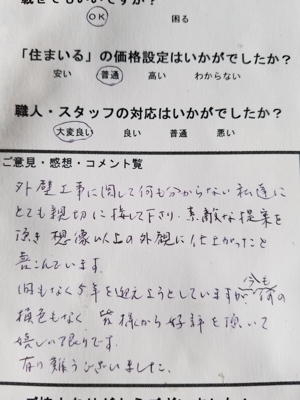 載せてもいいですか？
OK 困る
「住まいる」の価格設定はいかがでしたか？
安い 普通 高い わからない
職人・スタッフの対応はいかがでしたか？
大変良い 良い 普通 悪い
ご意見・感想・コメント覧
外壁工事に関して何も分からない私達に
とても親切に接して下さり、素敵な提案を
頂き想像以上の外観に仕上がったこと
喜こんでいます。
間もなく5年を迎えようとしていますが、今も何の
損色もなく皆様から好評を頂いて
嬉しい限りです。
有り難うございました。